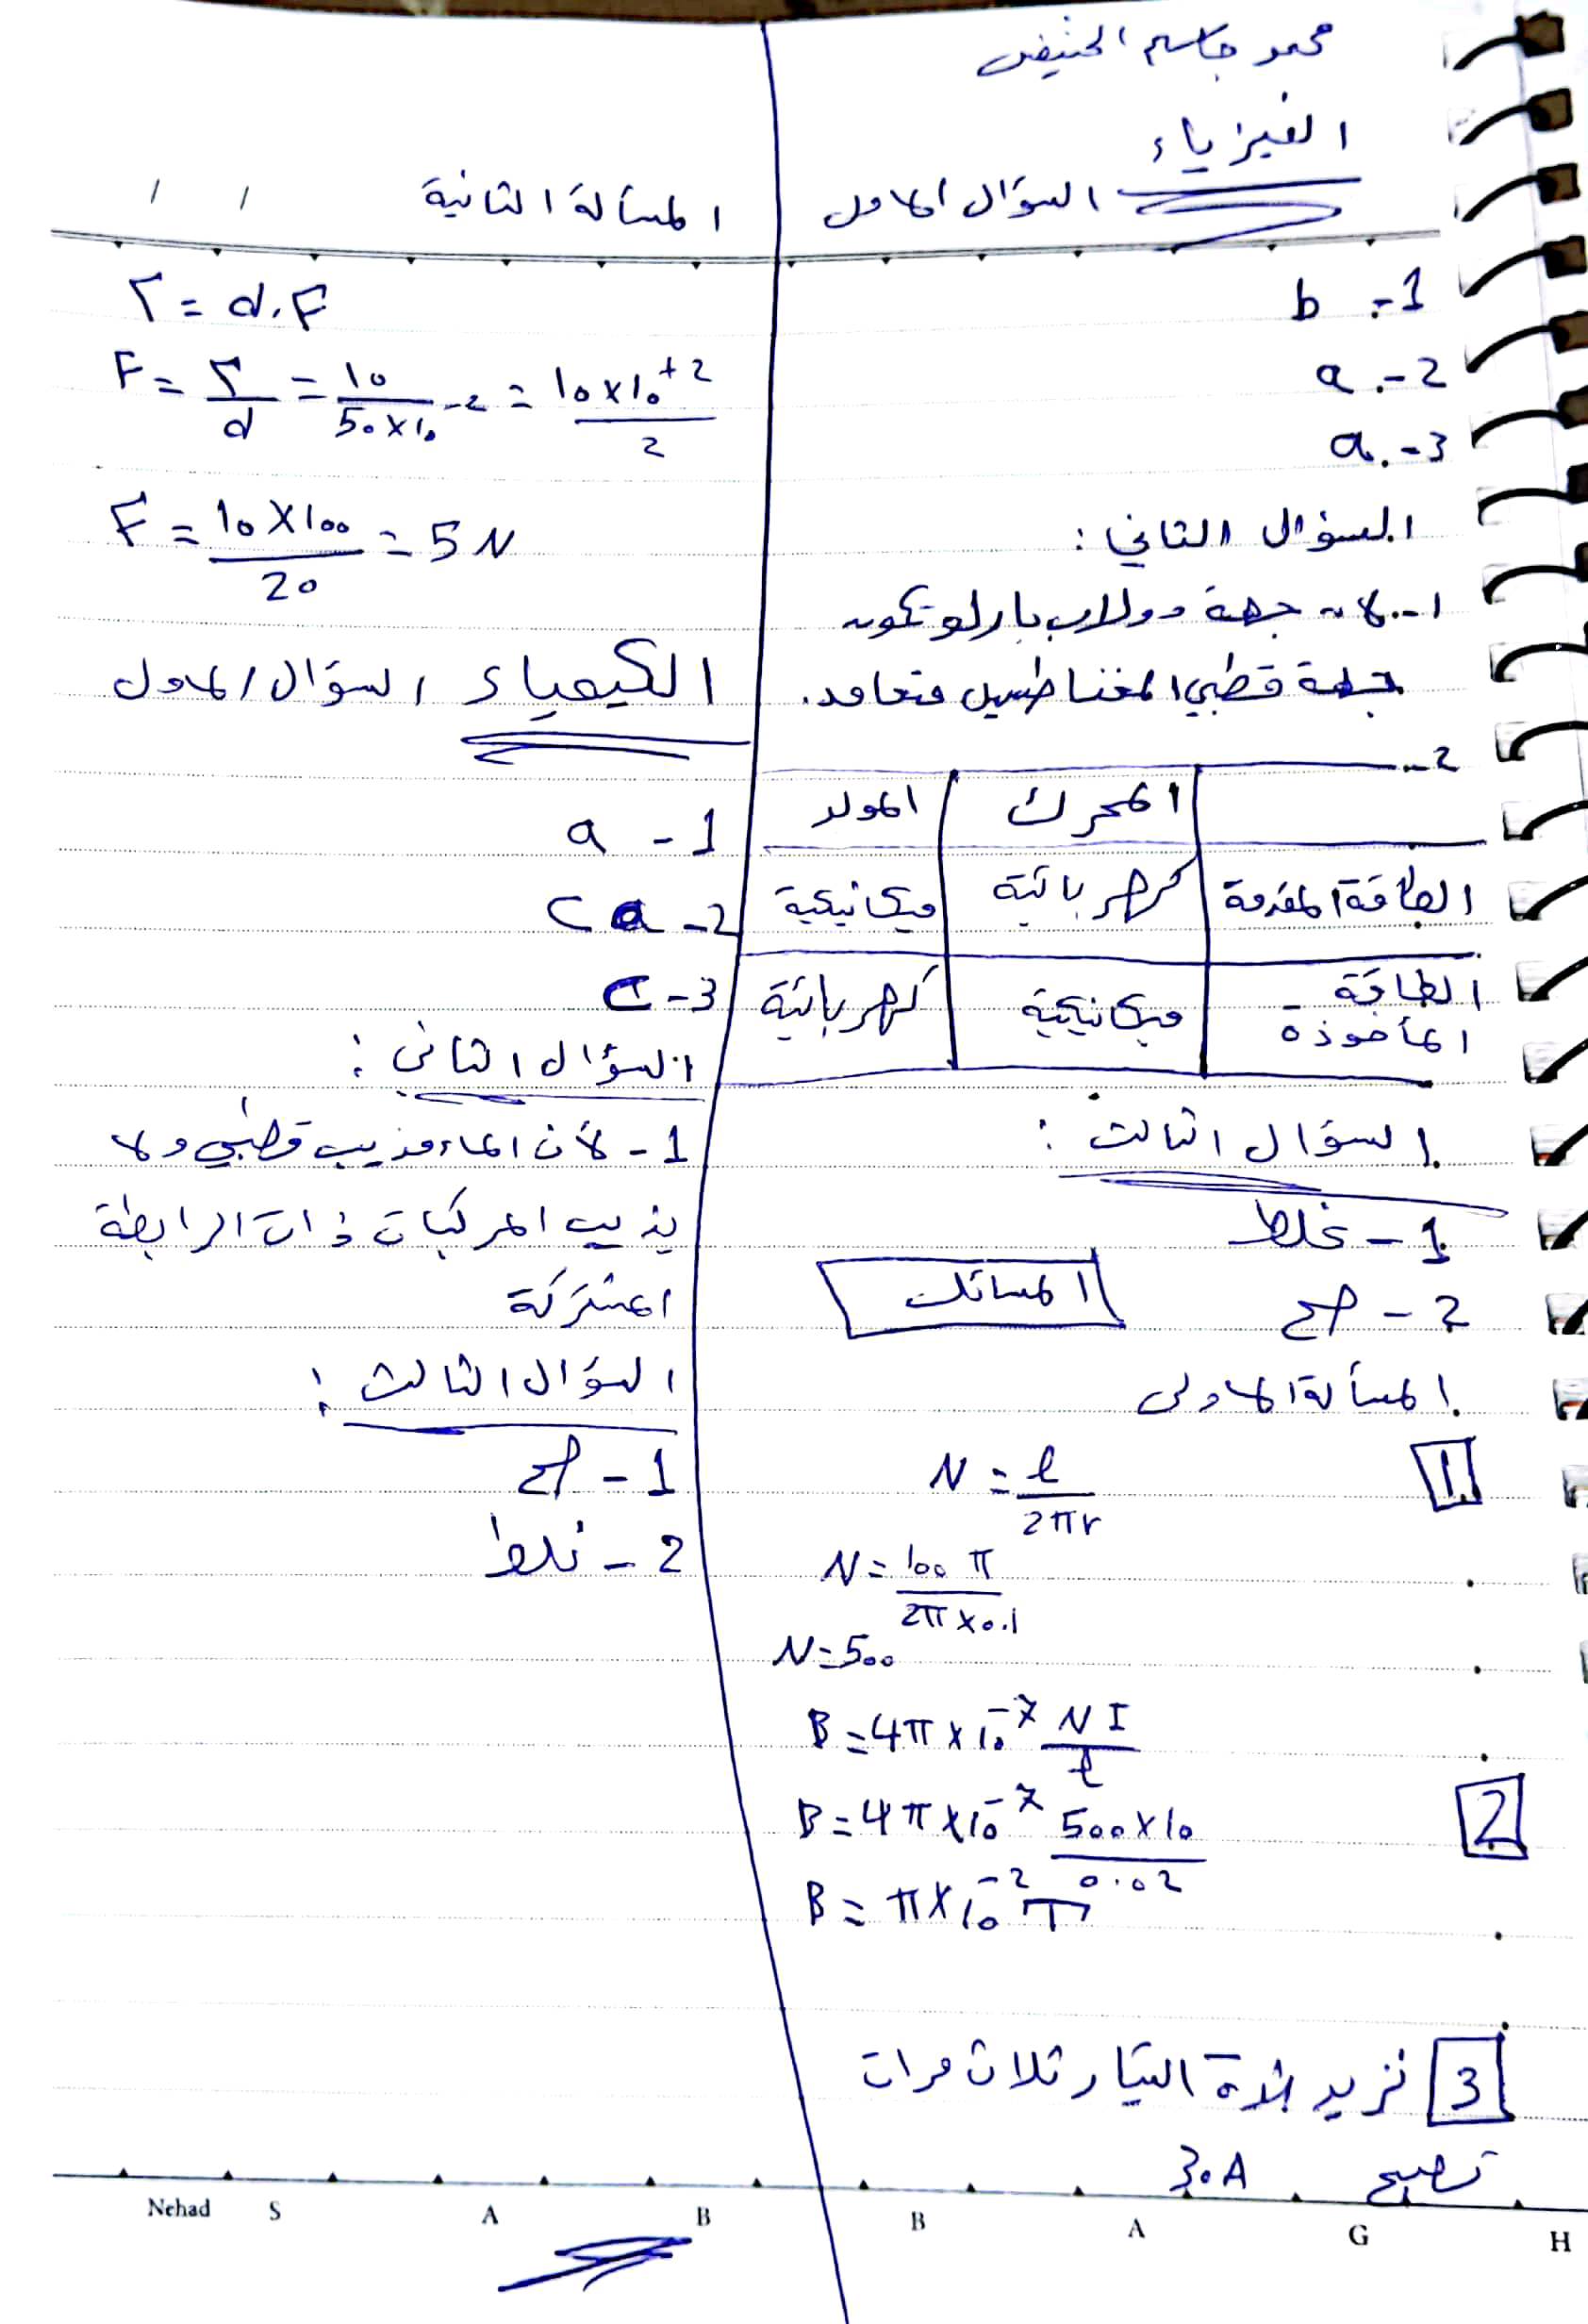 محمد جاسم الحنيفي
الفيزياء
السؤال الأول
1- b
2- a
3- a
السؤال الثاني :
1- لأن جهة دولاب بارلو تكون
جهة قطبي المغناطيس متعامد.
2-
المحرك المولد
الطاقة المقدمة كهربائية ميكانيكية
الطاقة المأخوذة ميكانيكية كهربائية
السؤال الثالث :
1- غلط
2- صح
المسائل
المسألة الأولى
1 N = l / 2πr
N = 100 π / 2π × 0.1
N = 500
B = 4π × 10^-7 N I / l
2 B = 4π × 10^-7 500 × 10 / 0.02
B = π × 10^-2 T
3 نزيد شدة التيار ثلاث مرات
تصبح 30A
المسألة الثانية
Γ = d.F
F = Γ / d = 10 / 50 × 10^-2 = 10 × 10^+2 / 2
F = 10 × 100 / 20 = 5 N
الكيمياء السؤال الأول
1 - a
2 - a c
3 - c
السؤال الثاني :
1 - لأن الماء مذيب قطبي ولا
يذيب المركبات ذات الرابطة
المشتركة
السؤال الثالث :
1 - صح
2 - غلط
Nehad S A B B A G H